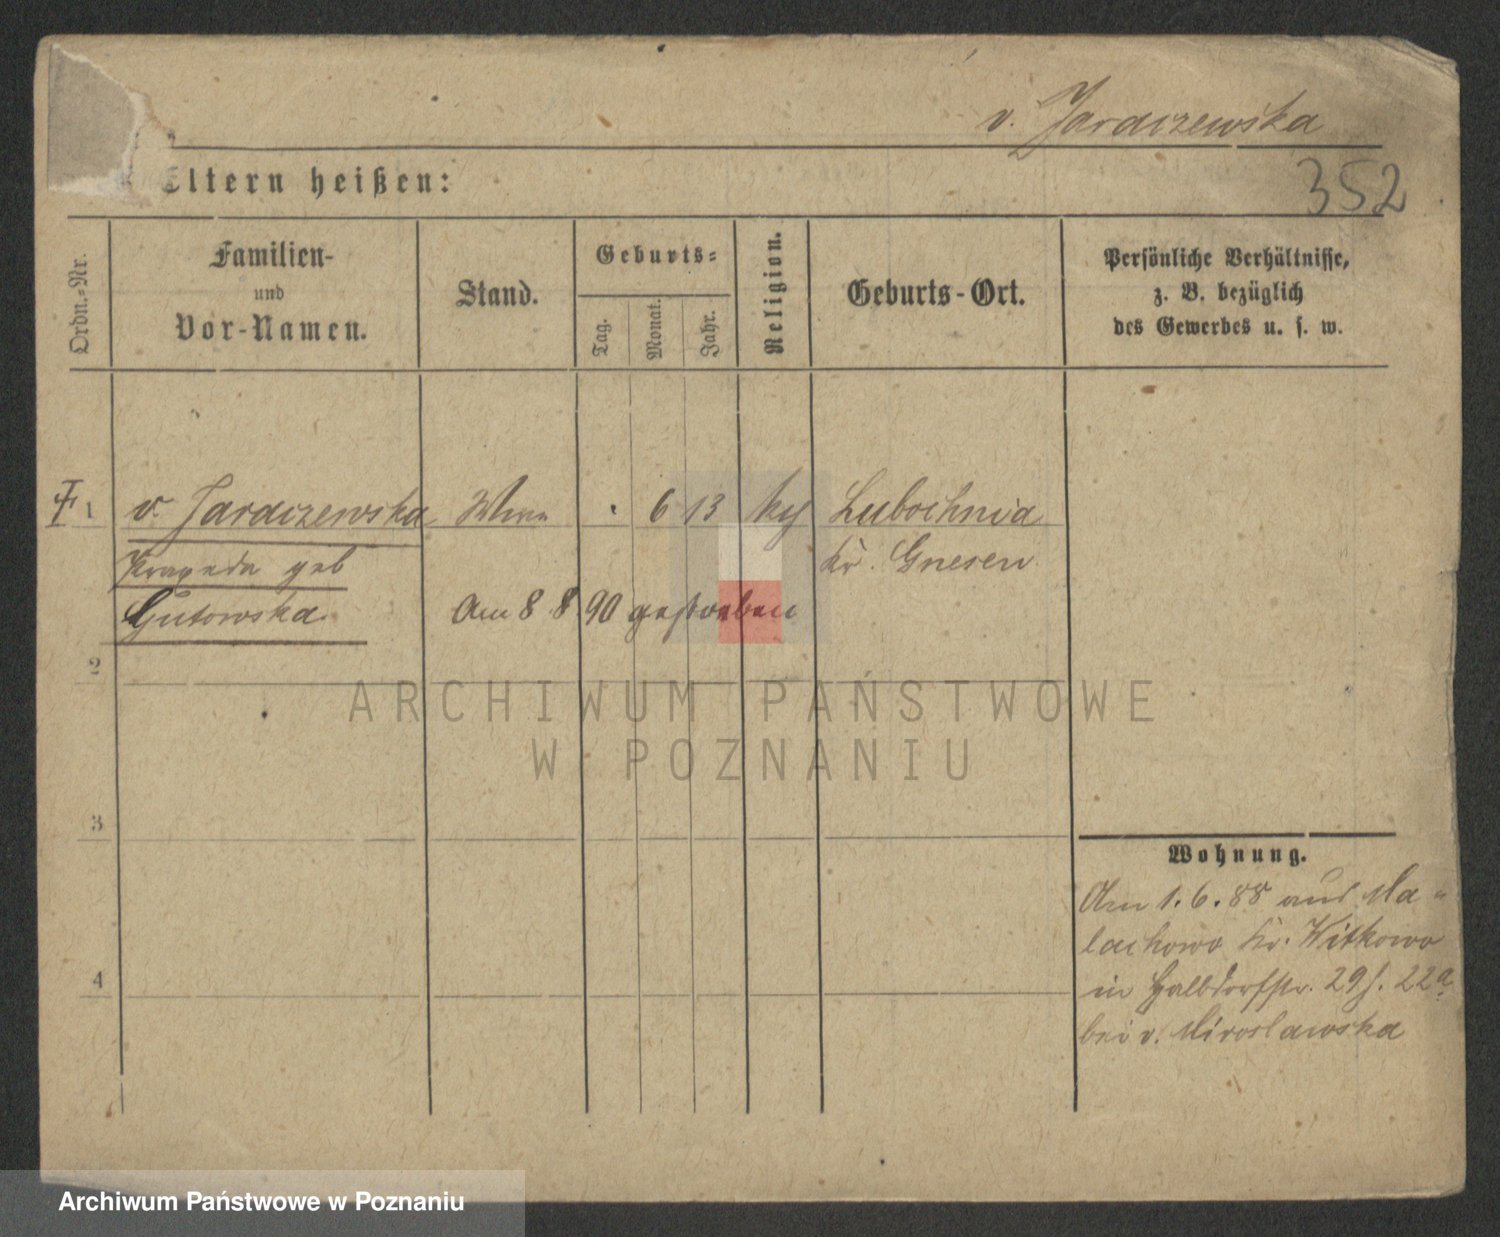 v. Jaraczewska
Eltern heißen:
352
Ordn.-Nr.
Familien-
und
Vor-Namen.
Stand.
Geburts-
Tag.
Monat.
Jahr.
Religion.
Geburts-Ort.
Persönliche Verhältnisse,
z. B. bezüglich
des Gewerbes u. s. w.
1 v. Jaraczewska Wwe 6 13 Lubochnia
geb Kr. Gnesen
Gutowska Am 8 8 90 gestorben
2
3
4
Wohnung.
Am 1.6.88 aus Ma-
lachowo Kr. Witkowo
in Halbdorfstr. 29 f. 22a
bei v. Miroslawska
ARCHIWUM PAŃSTWOWE
W POZNANIU
Archiwum Państwowe w Poznaniu